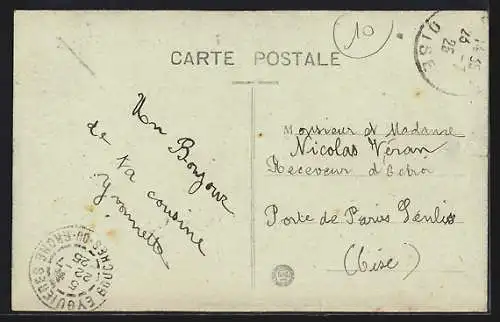 CARTE POSTALE
10
OISE
Un Bonjour
de ta cousine
Yvonnette
Monsieur et Madame
Nicolas Véran
Receveur d'Octroi
Porte de Paris Senlis
(Oise)
EYGUIERES
BOUCHES-DU-RHONE